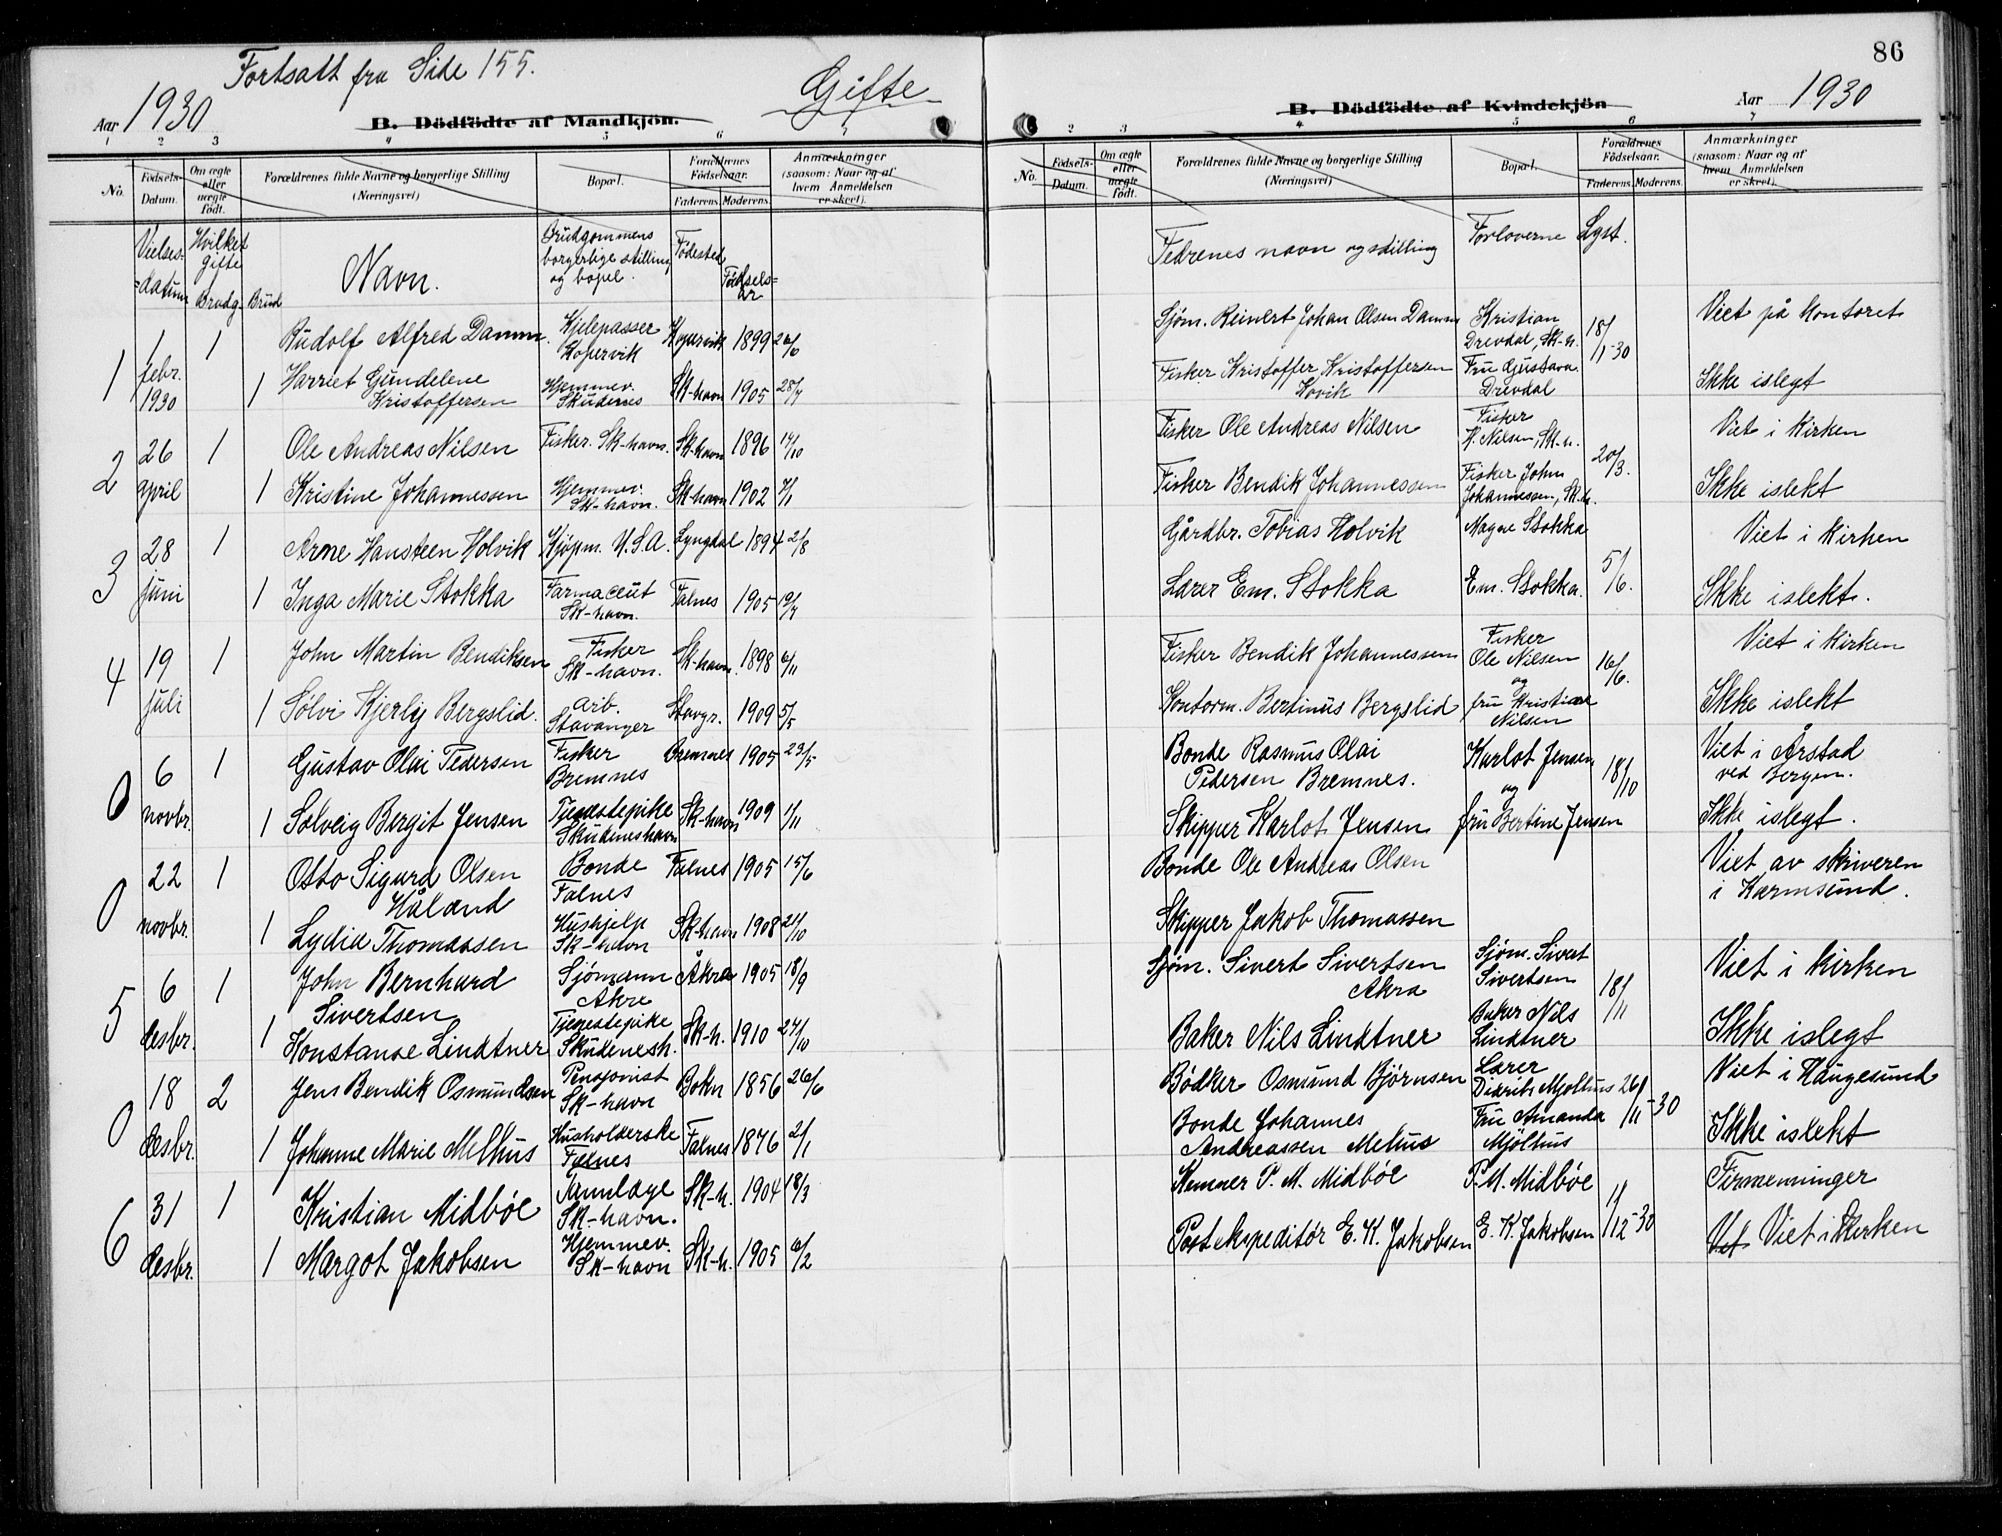 Fortsatt fra Side 155.
Aar 1930
B. Dödfödte af Mandkjön.
Gifte
1 2 3 4 5 6 7
No.
Födsels-Datum.
Om ægte eller uægte födt.
Forældrenes fulde Navne og borgerlige Stilling (Næringsvei)
Bopæl.
Forældrenes Födselsaar.
Faderens. Moderens.
Anmærkninger (saasom: Naar og af hvem Anmeldelsen er skeet).
Vielses=datum
Hvilket Gifte
Brudg. Brud
Navn.
Brudgommens borgerlige stilling og bopel.
Födested
Födsels=år
1 1 febr. 1930 1 Rudolf Alfred Damm. Kjelepasser Kopervik Kopervik 1899 26/6
1 Harriet Gundelene Kristoffersen Hjemmev. Skudenes Sk-havn 1905 28/7
2 26 april 1 Ole Andreas Nilsen Fisker. Sk-havn. Sk-havn 1896 14/10
1 Kristine Johannessen Hjemmev. Sk-havn. Sk-havn 1902 7/1
3 28 juni 1 Arne Hansteen Holvik Kjöpm. U.S.A. Lyngdal 1894 2/8
1 Inga Marie Stokka Farmaceut Sk-havn. Falnes 1905 19/7
4 19 juli 1 John Martin Bendiksen Fisker Sk-havn. Sk-havn. 1898 6/11
1 Sølvi Kjerly Bergslid. Arb. Stavanger Stavgr. 1909 5/5
0 6 novbr. 1 Gustav Olai Pedersen Fisker Bremnes Bremnes 1905 23/5
1 Solveig Bergit Jensen Tjenestepike Skudineshavn Sk-havn 1909 1/11
0 22 novbr. 1 Otto Sigurd Olsen Håland Bonde Falnes Falnes 1905 15/6
1 Lydia Thomassen Hushjelp Sk-havn Sk-havn 1908 21/10
5 6 desbr. 1 John Bernhard Sivertsen Sjömann Akre Åkra 1905 18/9
1 Konstanse Lindtner Tjenestepike Skudenesh. Sk-h. 1910 24/10
0 18 desbr. 2 Jens Bendik Osmundsen Pensjonist Sk-havn Bokn 1856 26/6
1 Johanne Marie Melhus Husholderske Falnes Falnes 1876 2/1
6 31 desbr. 1 Kristian Midbøe Tannlæge Sk-havn. Sk-h. 1904 18/3
1 Margot Jakobsen Hjemmev. Sk-havn Sk-h. 1905 6/2
86
B. Dödfödte af Kvindekjön
Aar 1930
2 3 4 5 6 7
No.
Födsels-Datum.
Om ægte eller uægte födt.
Forældrenes fulde Navne og borgerlige Stilling (Næringsvei)
Bopæl.
Forældrenes Födselsaar.
Faderens. Moderens.
Anmærkninger (saasom: Naar og af hvem Anmeldelsen er skeet).
Fedrenes navn og stilling
Forloverne
Lyst.
Sjøm. Reinert Johan Olsen Damm Kristian Drevdal, Sk-h. 18/1-30 Viet på kontoret
Fisker Kristoffer Kristoffersen Hovik Fru Gustava Drevdal Ikke islegt
Fisker Ole Andreas Nilsen Fisker H. Nilsen, Sk-h. 20/3. Viet i kirken
Fisker Bendik Johannessen Fisker John Johannessen, Sk-h. Ikke islekt
Gårdbr. Tobias Holvik Magne Stokka 5/6. Viet i kirken
Lærer Em. Stokka Em. Stokka. Ikke islekt.
Fisker Bendik Johannessen Fisker Ole Nilsen og 16/6. Viet i kirken
Kontorm. Bertinus Bergslid fru Kristine Nilsen Ikke islekt
Bonde Rasmus Olai Pedersen Bremnes. Karlot Jensen og 18/10 Viet i Årstad ved Bergen.
Skipper Karlot Jensen fru Bertine Jensen Ikke islegt.
Bonde Ole Andreas Olsen Viet av skriveren i Karmsund.
Skipper Jakob Thomassen
Sjøm. Sivert Sivertsen Akra Sjøm. Sivert Sivertsen 18/11 Viet i kirken
Baker Nils Lindtner Baker Nils Lindtner Ikke islegt
Bødker Osmund Bjørnsen Lærer Didrik Mjølhus 26/11-30 Viet i Haugesund
Bonde Johannes Andreassen Melus Fru Amanda Mjølhus Ikke islekt
Kemner P. M. Midbøe P. M. Midbøe 1/12-30 Firmenninger
Postekspeditør E. K. Jakobsen E. K. Jakobsen Vet Viet i Kirken